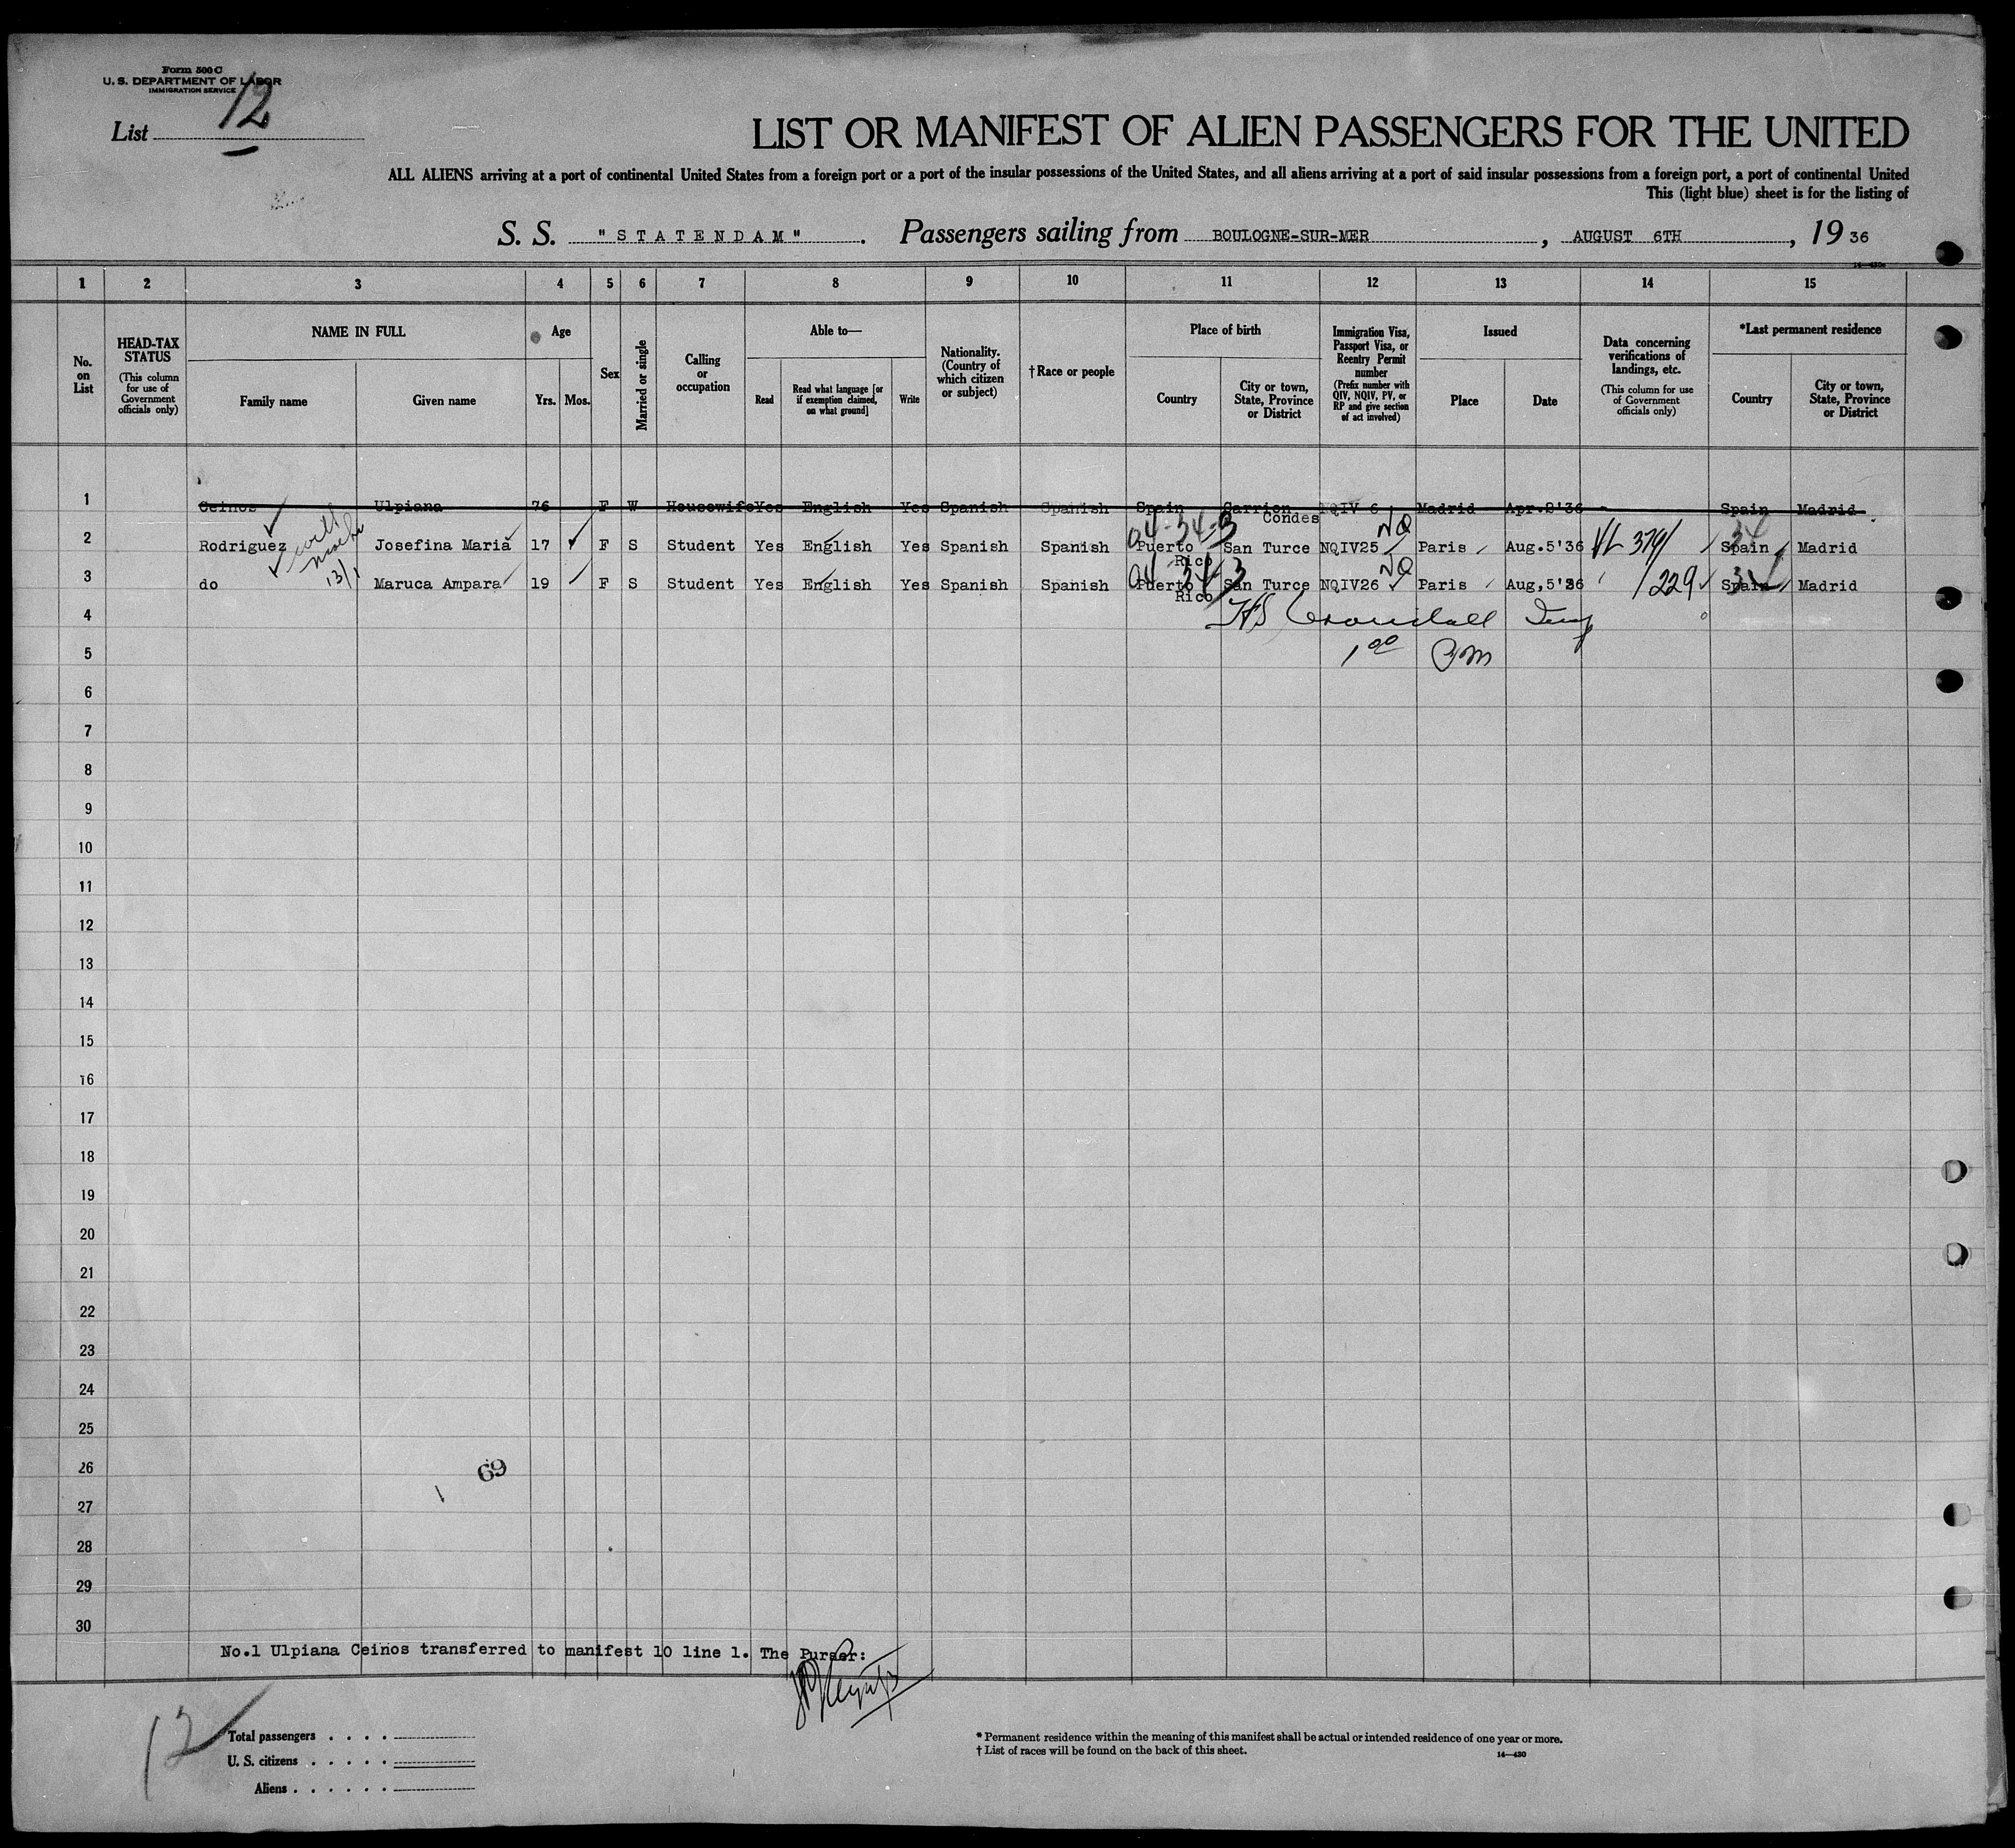 Form 500 C
U. S. DEPARTMENT OF LABOR
IMMIGRATION SERVICE
List 12
LIST OR MANIFEST OF ALIEN PASSENGERS FOR THE UNITED
ALL ALIENS arriving at a port of continental United States from a foreign port or a port of the insular possessions of the United States, and all aliens arriving at a port of said insular possessions from a foreign port, a port of continental United
This (light blue) sheet is for the listing of
S. S. "STATENDAM". Passengers sailing from BOULOGNE-SUR-MER, AUGUST 6TH, 1936
1 2 3 4 5 6 7 8 9 10 11 12 13 14 15
No. on List
HEAD-TAX STATUS
(This column for use of Government officials only)
NAME IN FULL
Family name Given name
Age
Yrs. Mos.
Sex
Married or single
Calling or occupation
Able to—
Read
Read what language [or if exemption claimed, on what ground]
Write
Nationality. (Country of which citizen or subject)
† Race or people
Place of birth
Country
City or town, State, Province or District
Immigration Visa, Passport Visa, or Reentry Permit number
(Prefix number with QIV, NQIV, PV, or RP and give section of act involved)
Issued
Place Date
Data concerning verifications of landings, etc.
(This column for use of Government officials only)
*Last permanent residence
Country
City or town, State, Province or District
1 Ceinos Ulpiana 76 F W Housewife Yes English Yes Spanish Spanish Spain Carrion Condes NQIV 6 Madrid Apr.8'36 Spain Madrid
2 Rodriguez Josefina Maria 17 F S Student Yes English Yes Spanish Spanish Puerto Rico San Turce NQIV25 Paris Aug.5'36 Spain Madrid
04-34-3 NQ VL 379/ 34
with
13/1
3 do Maruca Ampara 19 F S Student Yes English Yes Spanish Spanish Puerto Rico San Turce NQIV26 Paris Aug,5'36 Spain Madrid
04 34-3 NQ /229 34
4 HS Crandall Insp
5 1 00 PM
6
7
8
9
10
11
12
13
14
15
16
17
18
19
20
21
22
23
24
25
26
69
27
28
29
30
No.1 Ulpiana Ceinos transferred to manifest 10 line 1. The Purser:
12
Total passengers . . . .
U. S. citizens . . . . .
Aliens . . . . . .
* Permanent residence within the meaning of this manifest shall be actual or intended residence of one year or more.
† List of races will be found on the back of this sheet.
14—430